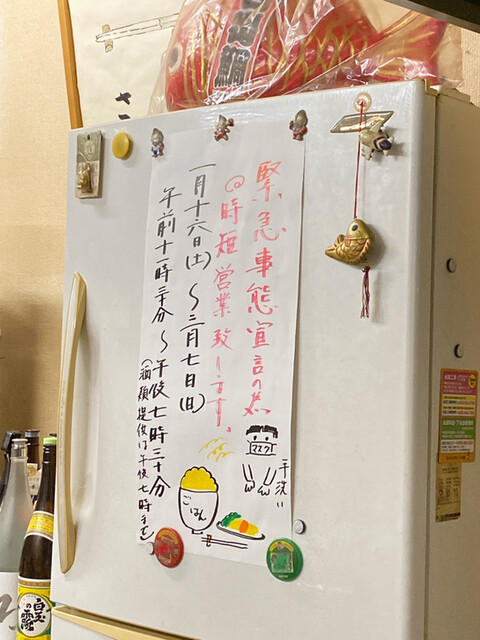 緊急事態宣言の為
@時短営業致します。
一月十六日(土)〜二月七日(日)
午前十一時三十分〜午後七時三十分
(酒類提供は午後七時まで)
マスク!
手洗い
ごはん
白玉の露